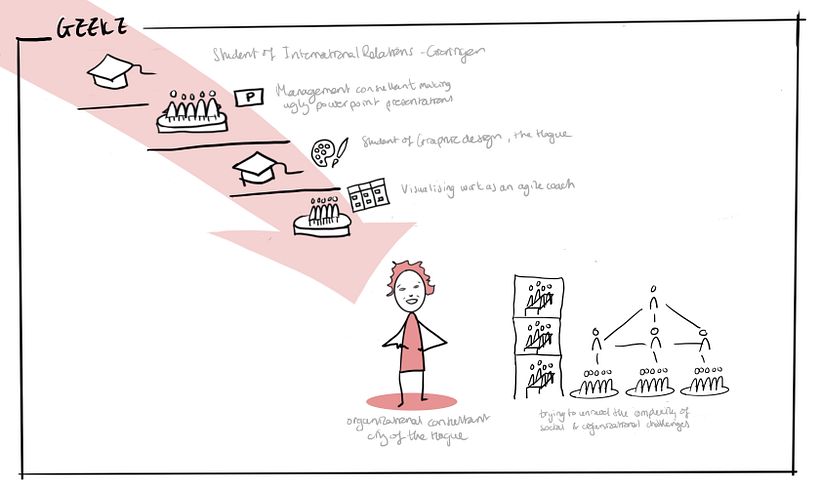 GEEKE
Student of International Relations - Groningen
Management consultant making
ugly powerpoint presentations
P
Student of Graphic design, the Hague
Visualising work as an agile coach
organizational consultant
city of the Hague
trying to unravel the complexity of
social & organizational challenges